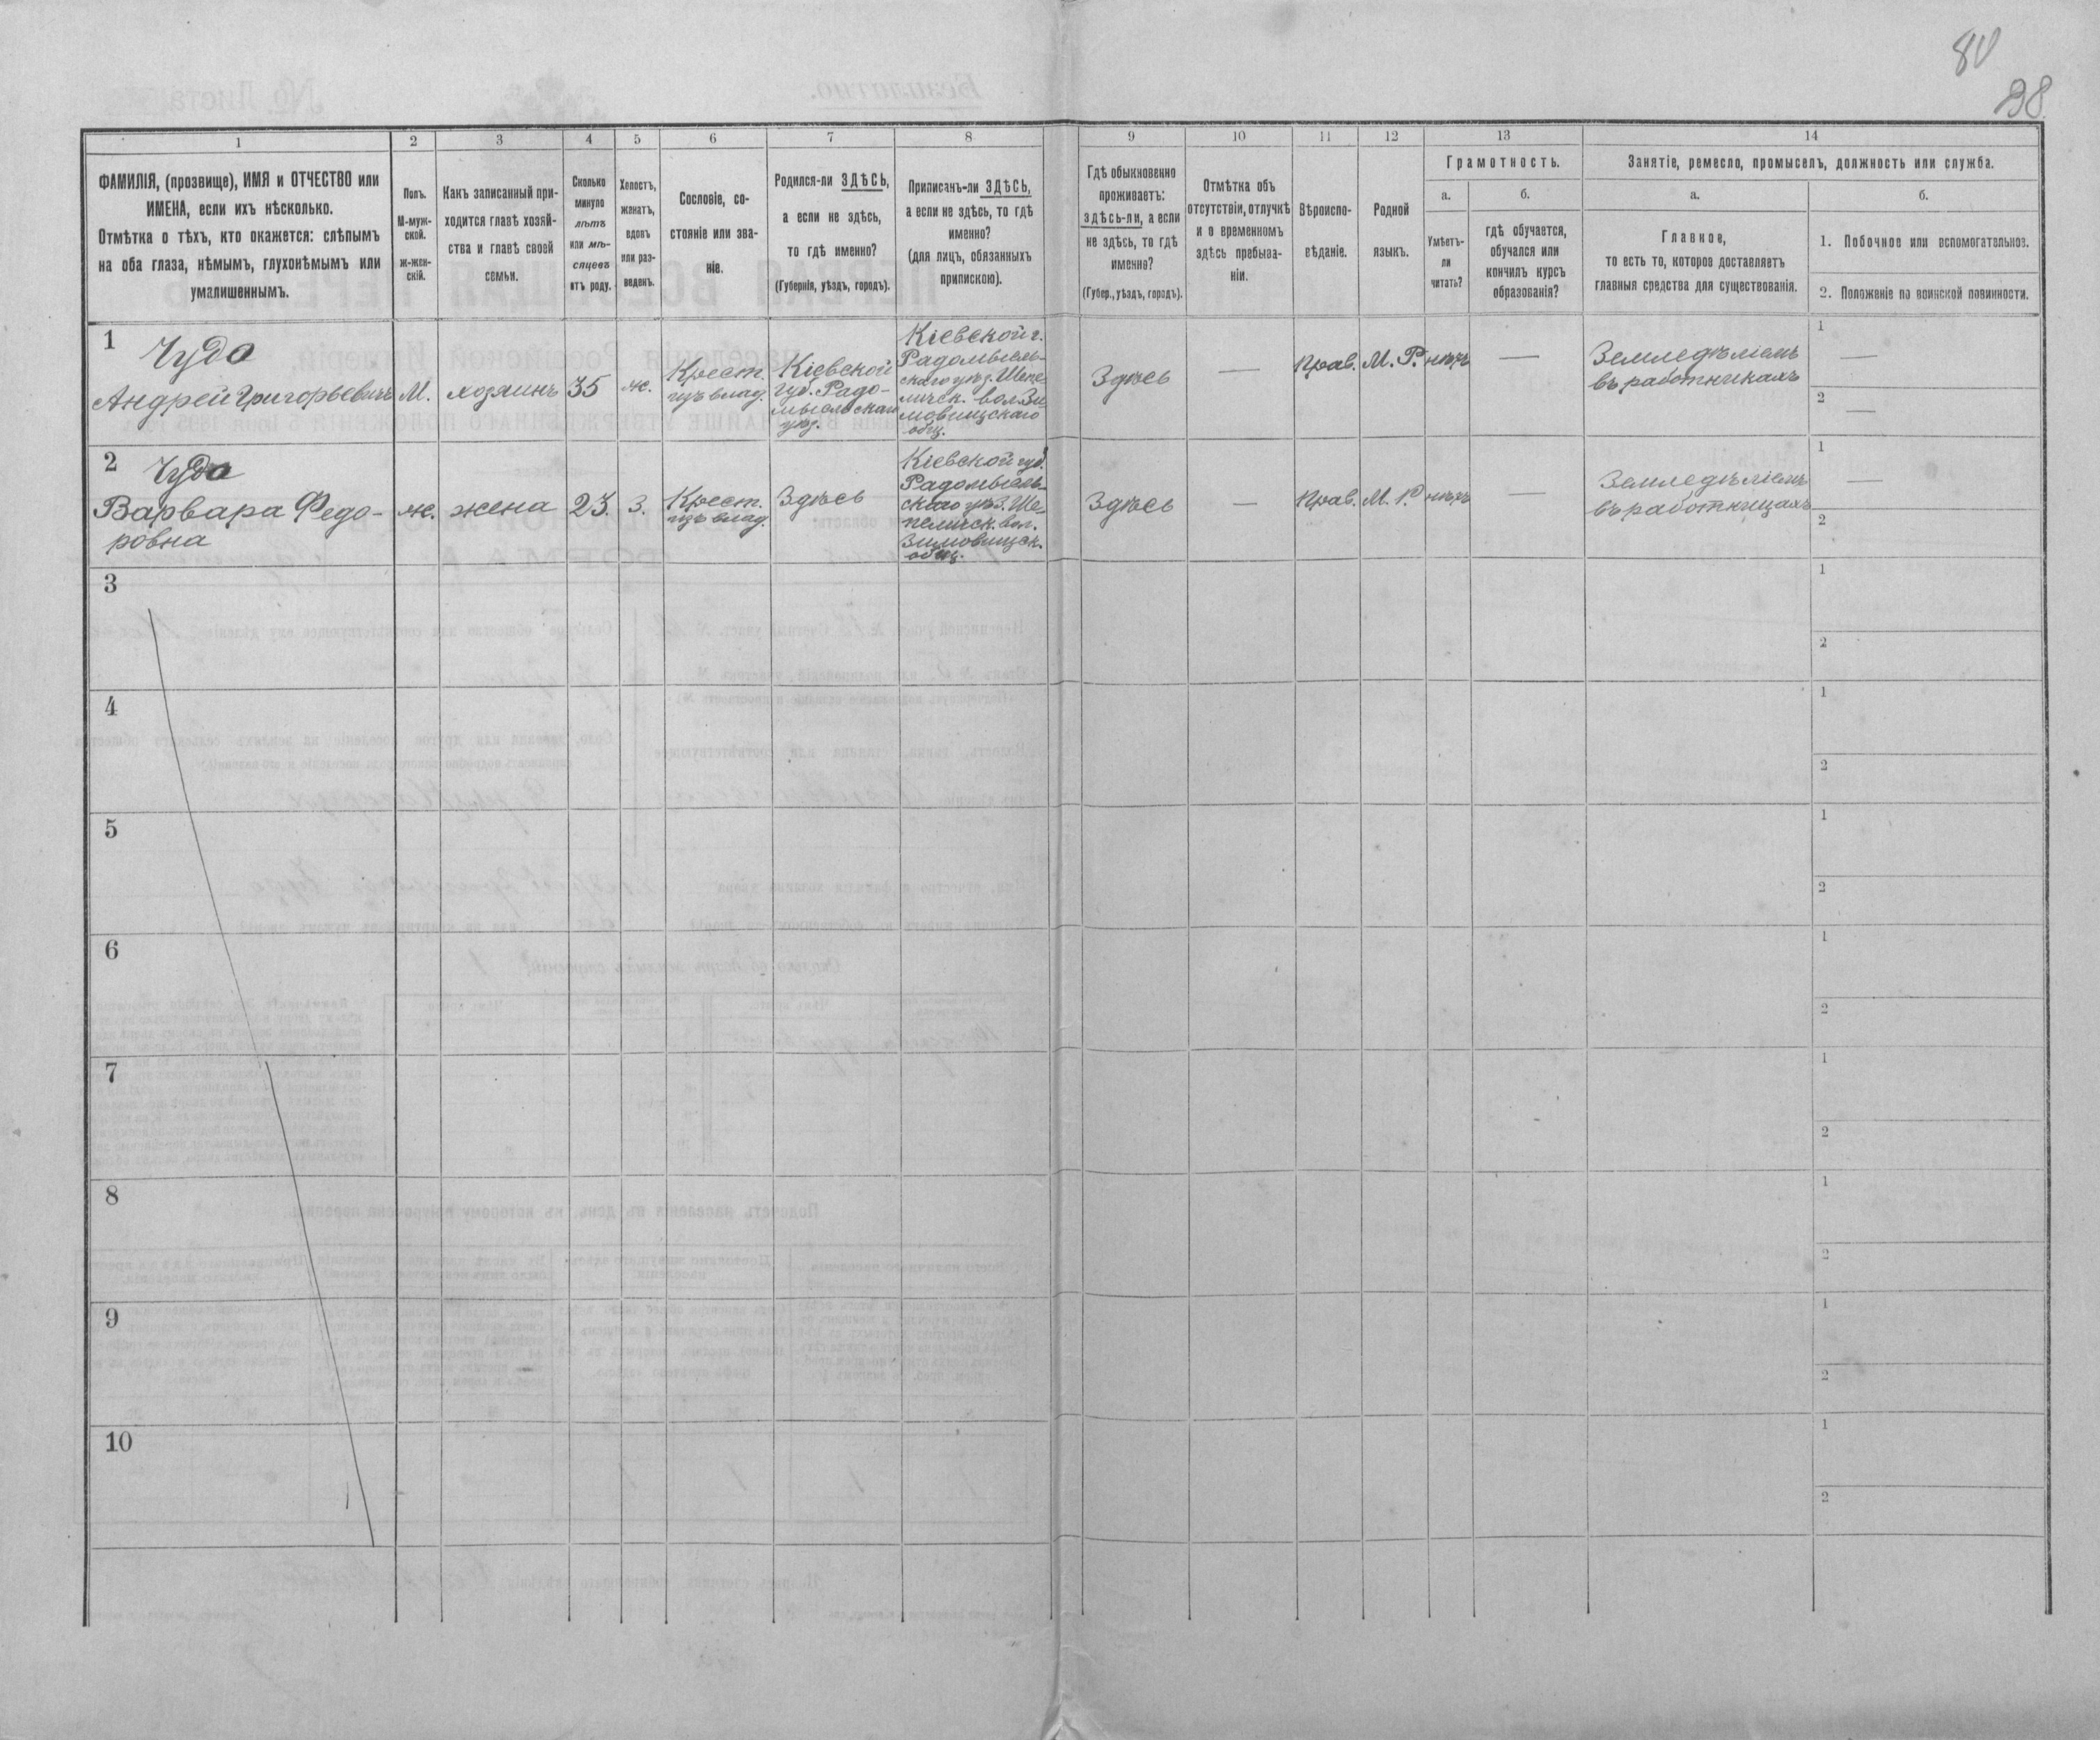 80
38
1
2
3
4
5
6
7
8
9
10
11
12
13
14
ФАМИЛІЯ, (прозвище), ИМЯ и ОТЧЕСТВО или
ИМЕНА, если ихъ нѣсколько.
Отмѣтка о тѣхъ, кто окажется: слѣпымъ
на оба глаза, нѣмымъ, глухонѣмымъ или
умалишеннымъ.
Полъ.
М-муж-
ской.
ж-жен-
скій.
Какъ записанный при-
ходится главѣ хозяй-
ства и главѣ своей
семьи.
Сколько
минуло
лѣтъ
или мѣ-
сяцевъ
отъ роду.
Холостъ,
женатъ,
вдовъ
или раз-
веденъ.
Сословіе, со-
стояніе или зва-
ніе.
Родился-ли ЗДѢСЬ,
а если не здѣсь,
то гдѣ именно?
(Губернія, уѣздъ, городъ).
Приписанъ-ли ЗДѢСЬ,
а если не здѣсь, то гдѣ
именно?
(для лицъ, обязанныхъ
припискою).
Гдѣ обыкновенно
проживаетъ:
здѣсь-ли, а если
не здѣсь, то гдѣ
именно?
(Губер., уѣздъ, городъ).
Отмѣтка объ
отсутствіи, отлучкѣ
и о временномъ
здѣсь пребыва-
ніи.
Вѣроиспо-
вѣданіе.
Родной
языкъ.
Грамотность.
а.
Умѣетъ-
ли
читать?
б.
гдѣ обучается,
обучался или
кончилъ курсъ
образованія?
Занятіе, ремесло, промыселъ, должность или служба.
а.
Главное,
то есть то, которое доставляетъ
главныя средства для существованія.
б.
1. Побочное или вспомогательное.
2. Положеніе по воинской повинности.
1
Чудо
Андрей Григорьевичъ
М.
хозяинъ
35
ж.
Крест.
изъ влад.
Кіевской
губ. Радо-
мысльскаго
уѣз.
Кіевской г.
Радомысль-
скаго уѣз. Шепе-
личск. вол. Зи-
мовищскаго
общ.
Здѣсь
—
Прав.
М. Р.
нѣтъ
—
Земледѣліемъ
въ работникахъ
1
—
2
—
2
Чудо
Варвара Федо-
ровна
ж.
жена
23.
З.
Крест.
изъ влад.
Здѣсь
Кіевской губ.
Радомысль-
скаго уѣз. Ше-
пеличск. вол.
Зимовищск.
общ.
Здѣсь
—
Прав.
М. Р.
нѣтъ
—
Земледѣліемъ
въ работницахъ
1
—
2
3
1
2
4
1
2
5
1
2
6
1
2
7
1
2
8
1
2
9
1
2
10
1
2